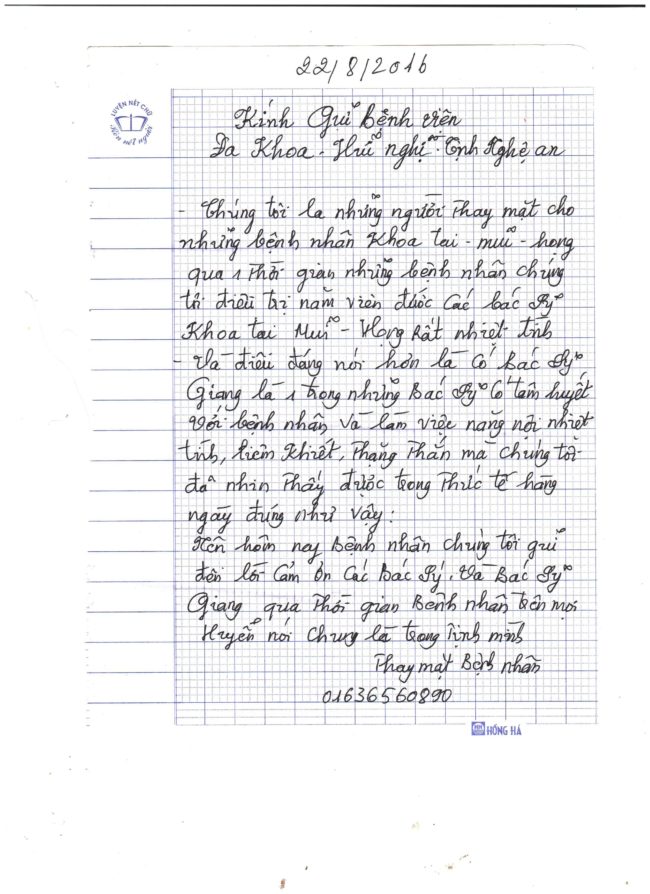 22/8/2016
LUYỆN NÉT CHỮ
Rèn nết người
Kính Gửi Bệnh viên
Đa Khoa - Hữu nghị Tỉnh Nghệ an
- Chúng tôi la những người Thay mặt cho
những bệnh nhân Khoa tai - mũi - họng
qua 1 Thời gian những bệnh nhân chúng
tôi điều trị nằm viên được Các bác sỹ
Khoa tai Mũi - Họng Rất nhiệt tình
- Và điều đáng nói hơn là Có Bác Sỹ
Giang là 1 trong những Bác Sỹ Có tâm huyết
Với bệnh nhân và làm việc năng nội nhiệt
tình, liêm Khiết, Thẳng Thắn mà chúng tôi
đã nhìn Thấy được trong Thức tế hàng
ngày đúng như vậy:
Nên hôm nay Bệnh nhân chúng tôi gửi
đến lời Cảm ơn Các Bác Sỹ. Và Bác Sỹ
Giang qua Thời gian Bệnh nhân trên mọi
Huyễn nói Chung là trong Tịnh mình
Thay mặt Bệnh nhân
01636560890
HỒNG HÀ